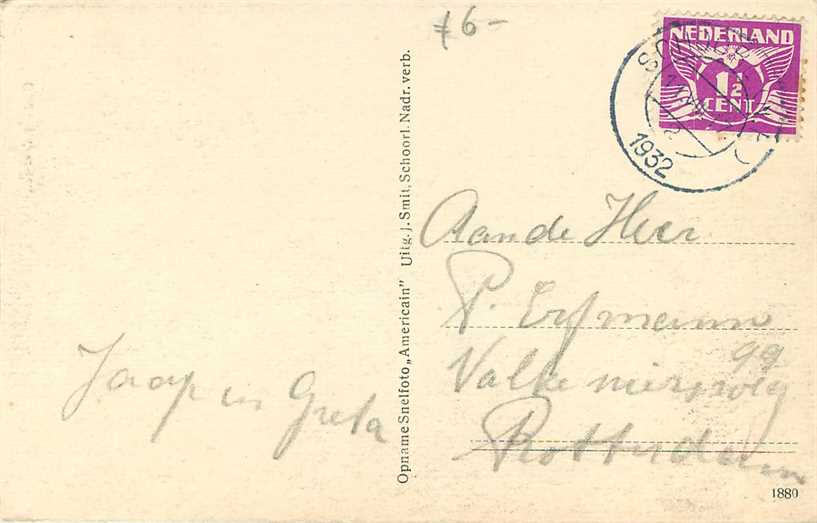 76-
NEDERLAND
1½
CENT
1932
Aan de Heer
P. Erfmann
99
Valkeniersweg
Rotterdam
Jaap en Greta
Opname Snelfoto „Americain” Uitg. J. Smit, Schoorl. Nadr. verb.
1880